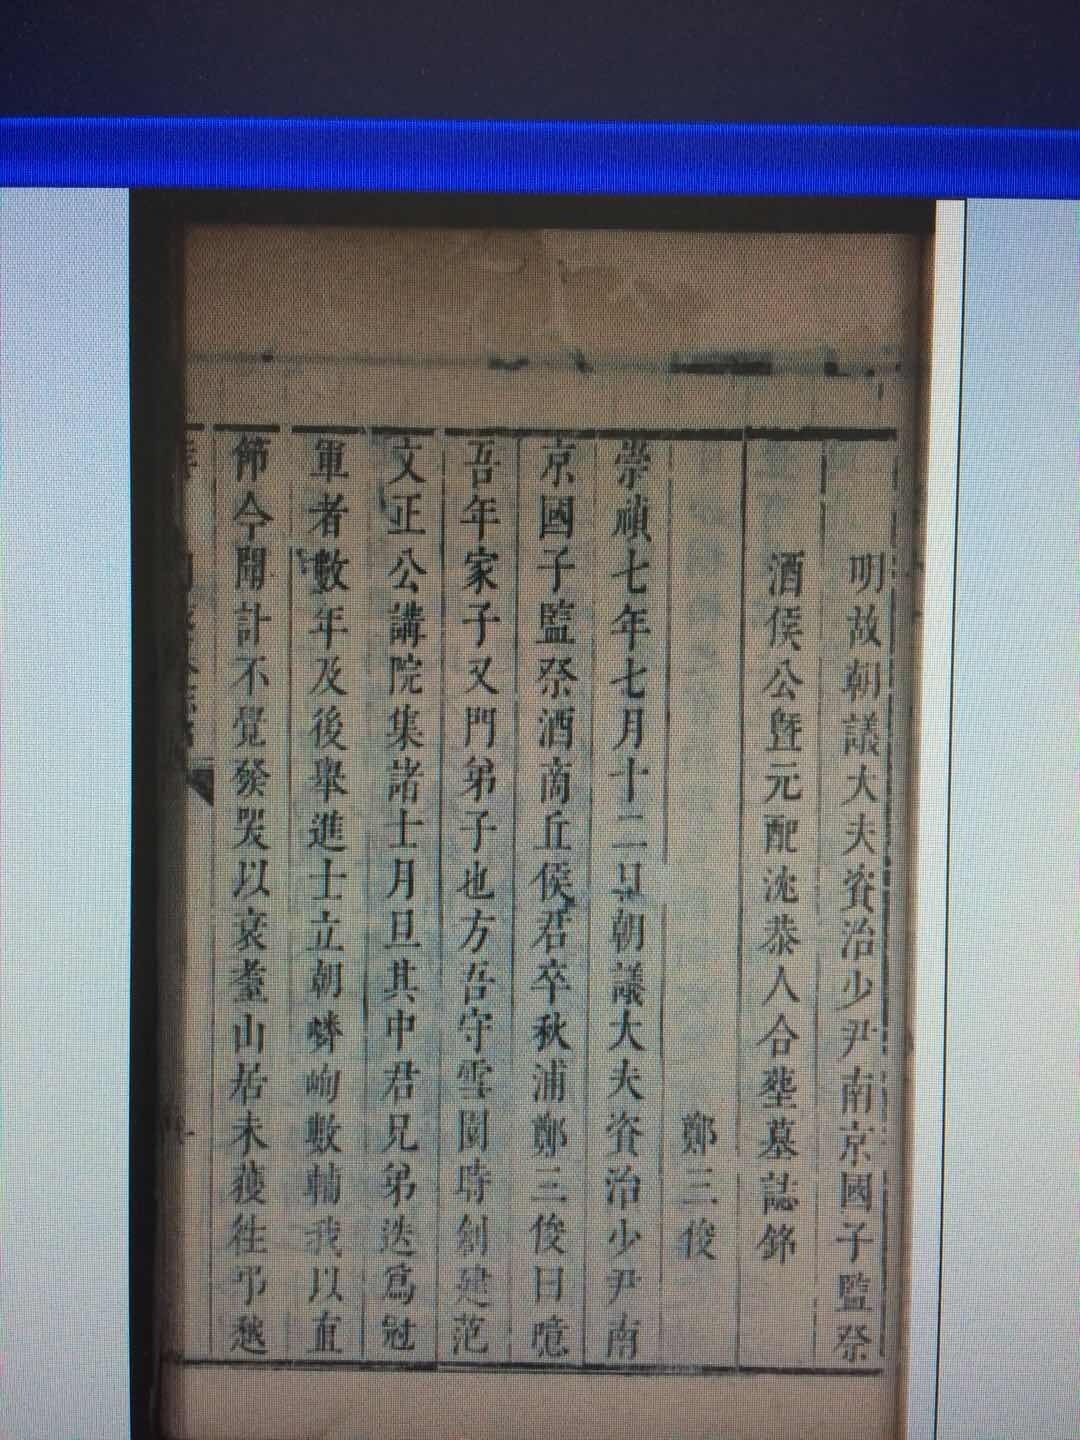 明故朝議大夫資治少尹南京國子監祭
酒侯公暨元配沈恭人合塟墓誌銘
鄭三俊
崇禎七年七月十二日朝議大夫資治少尹南
京國子監祭酒商丘侯君卒秋浦鄭三俊曰噫
吾年家子又門弟子也方吾守雪園時創建范
文正公講院集諸士月旦其中君兄弟迭爲冠
軍者數年及後舉進士立朝嶙峋數輔我以直
節今聞訃不覺發哭以衰耋山居未獲往弔越